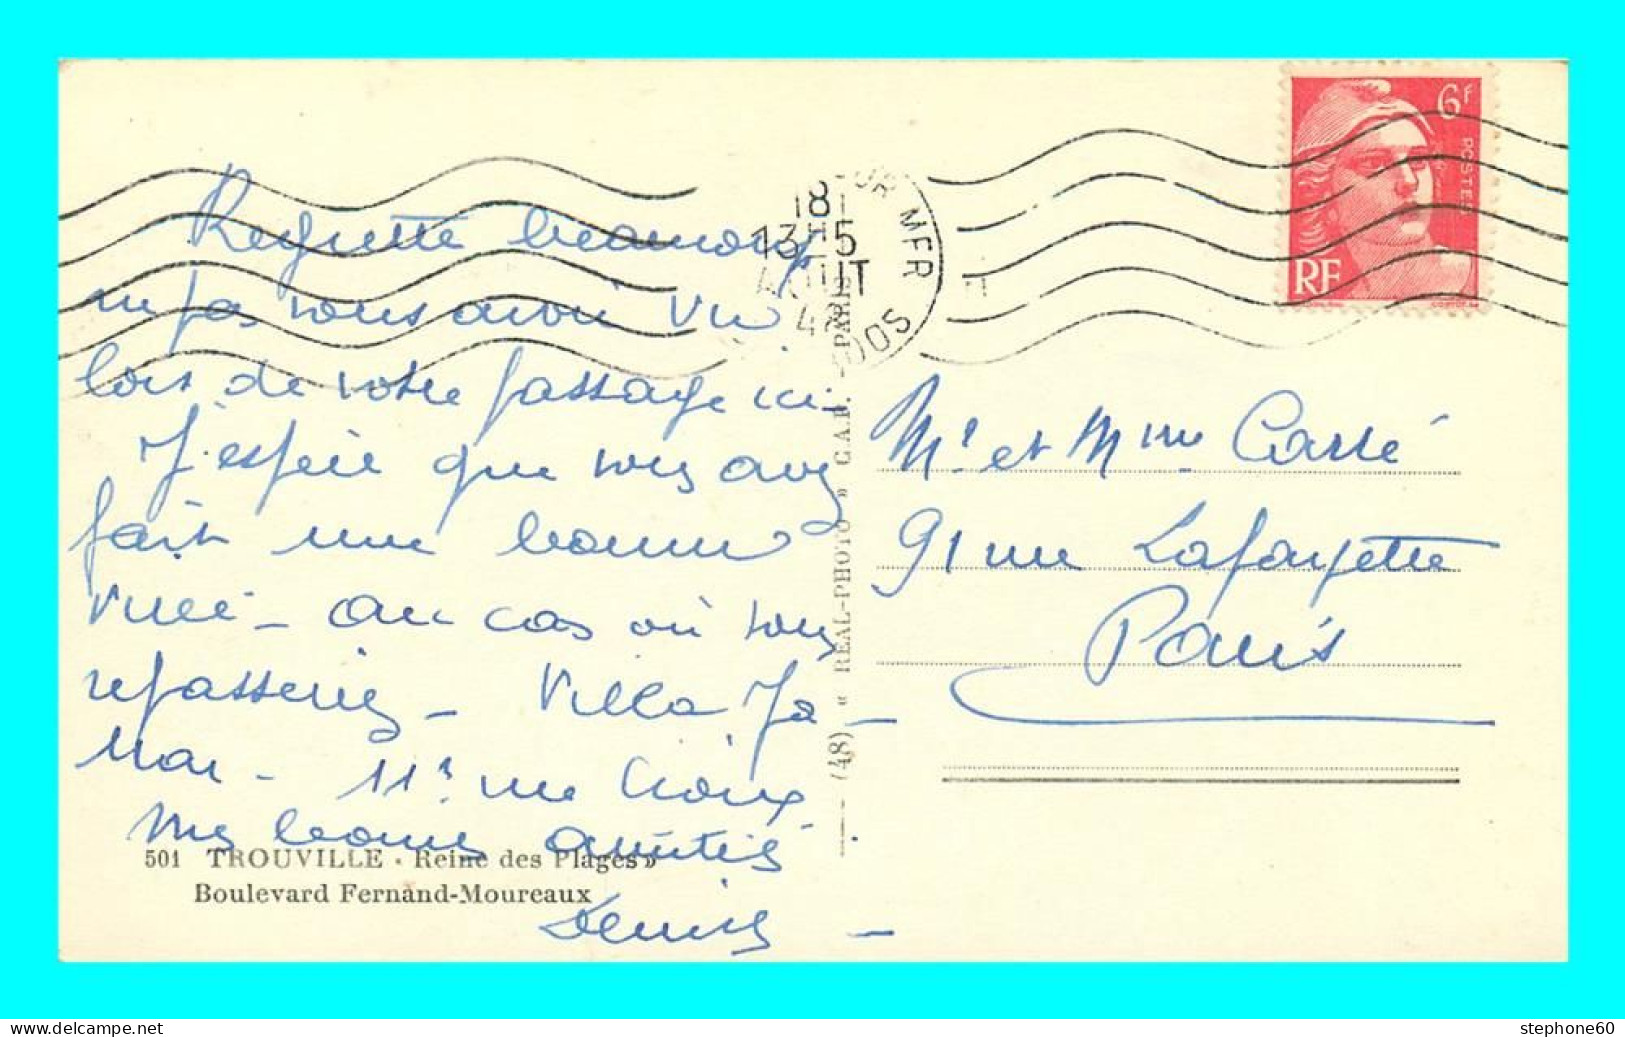 Regrette beaucoup
ne pas vous avoir vu
lors de votre passage ici
J'espère que vous avez
fait une bonne
virée - au cas où vous
repasseriez - Villa Ja -
mar - 11 rue Croix
Mes bonnes amitiés
Denise -
501 TROUVILLE • Reine des Plages »
Boulevard Fernand-Moureaux
(48) « REAL-PHOTO » C.A.P. - PARIS
18
13H15
AOUT
UR MER
DOS
6F
POSTES
RF
Mr et Mme Carré
91 rue Lafayette
Paris
www.delcampe.net
stephone60